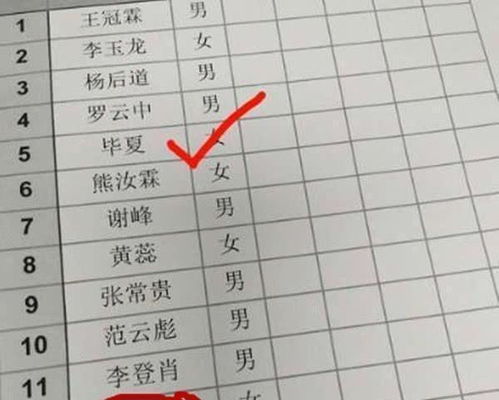 1 王冠霖 男
2 李玉龙 女
3 杨后道 男
4 罗云中 男
5 毕夏 女
6 熊汝霖 女
7 谢峰 男
8 黄蕊 女
9 张常贵 男
10 范云彪 男
11 李登肖 男
女